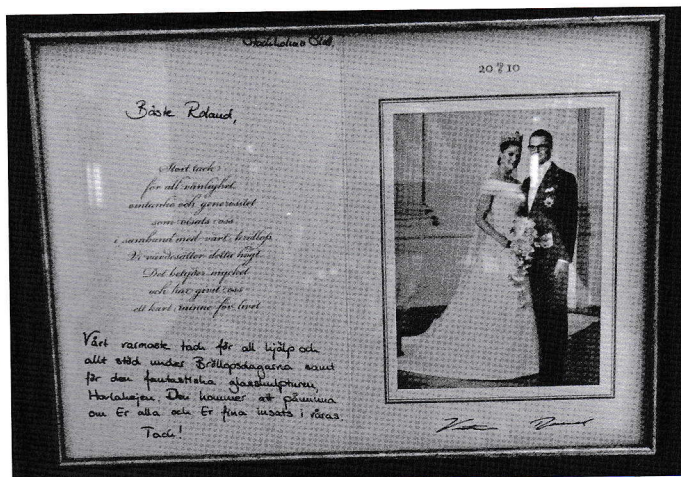 Stockholms Slott
20 19/6 10
Bäste Roland,
Stort tack
för all vänlighet
omtanke och generositet
som visats oss
i samband med vårt bröllop
Vi värdesätter detta högt
Det betyder mycket
och har givit oss
ett kärt minne för livet
Vårt varmaste tack för all hjälp och
allt stöd under Bröllopsdagarna samt
för den fantastiska glasskulpturen,
Havlahejen. Den kommer att påminna
om Er alla och Er fina insats i våras.
Tack!